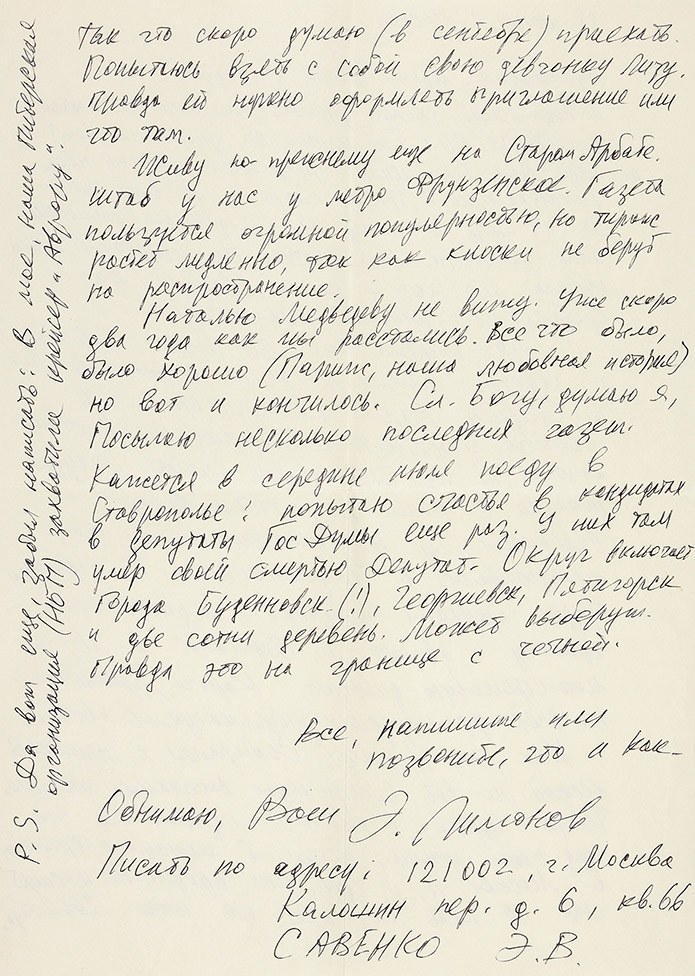 Так что скоро думаю (в сентябре) приехать.
Попытаюсь взять с собой свою девчонку Лизу.
Правда ей нужно оформлять приглашение или
что там.
Живу по прежнему еще на Старом Арбате.
Штаб у нас у метро Фрунзенское. Газета
пользуется огромной популярностью, но тираж
растет медленно, так как киоски не берут
на распространение.
Наталью Медведеву не вижу. Уже скоро
два года как мы расстались. Все что было,
было хорошо (Париж, наша любовная история)
но вот и кончилось. Сл. Богу, думаю я,
Посылаю несколько последних газет.
Кажется в середине июля поеду в
Ставрополье: попытаю счастья в кандидатах
в депутаты Гос Думы еще раз. У них там
умер своей смертью Депутат. Округ включает
города Буденновск (!), Георгиевск, Пятигорск
и две сотни деревень. Может выберут.
Правда это на границе с чечней.
Все, напишите или
позвоните, что и как –
Обнимаю, Ваш Э. Лимонов
Писать по адресу: 121002, г. Москва
Калошин пер. д. 6, кв. 66
САВЕНКО Э. В.
P. S. Да вот еще, забыл написать: В мае, наша Питерская
организация (НБП) захватила крейсер „Аврору“.